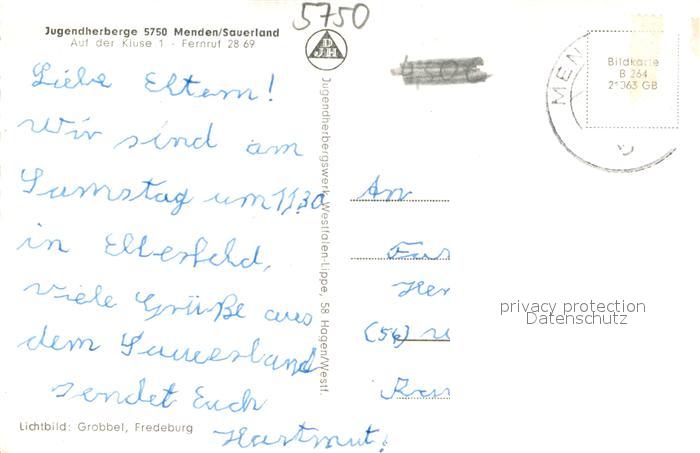 5750
Jugendherberge 5750 Menden/Sauerland
Auf der Kluse 1 - Fernruf 28 69
DJH
Liebe Eltern!
Wir sind am
Samstag um 11.30
in Elberfeld,
viele Grüße aus
dem Sauerland
sendet Euch
Hartmut!
Lichtbild: Grobbel, Fredeburg
Jugendherbergswerk Westfalen-Lippe, 58 Hagen/Westf.
MEN
Bildkarte
B 264
21063 GB
An
(56)
privacy protection
Datenschutz